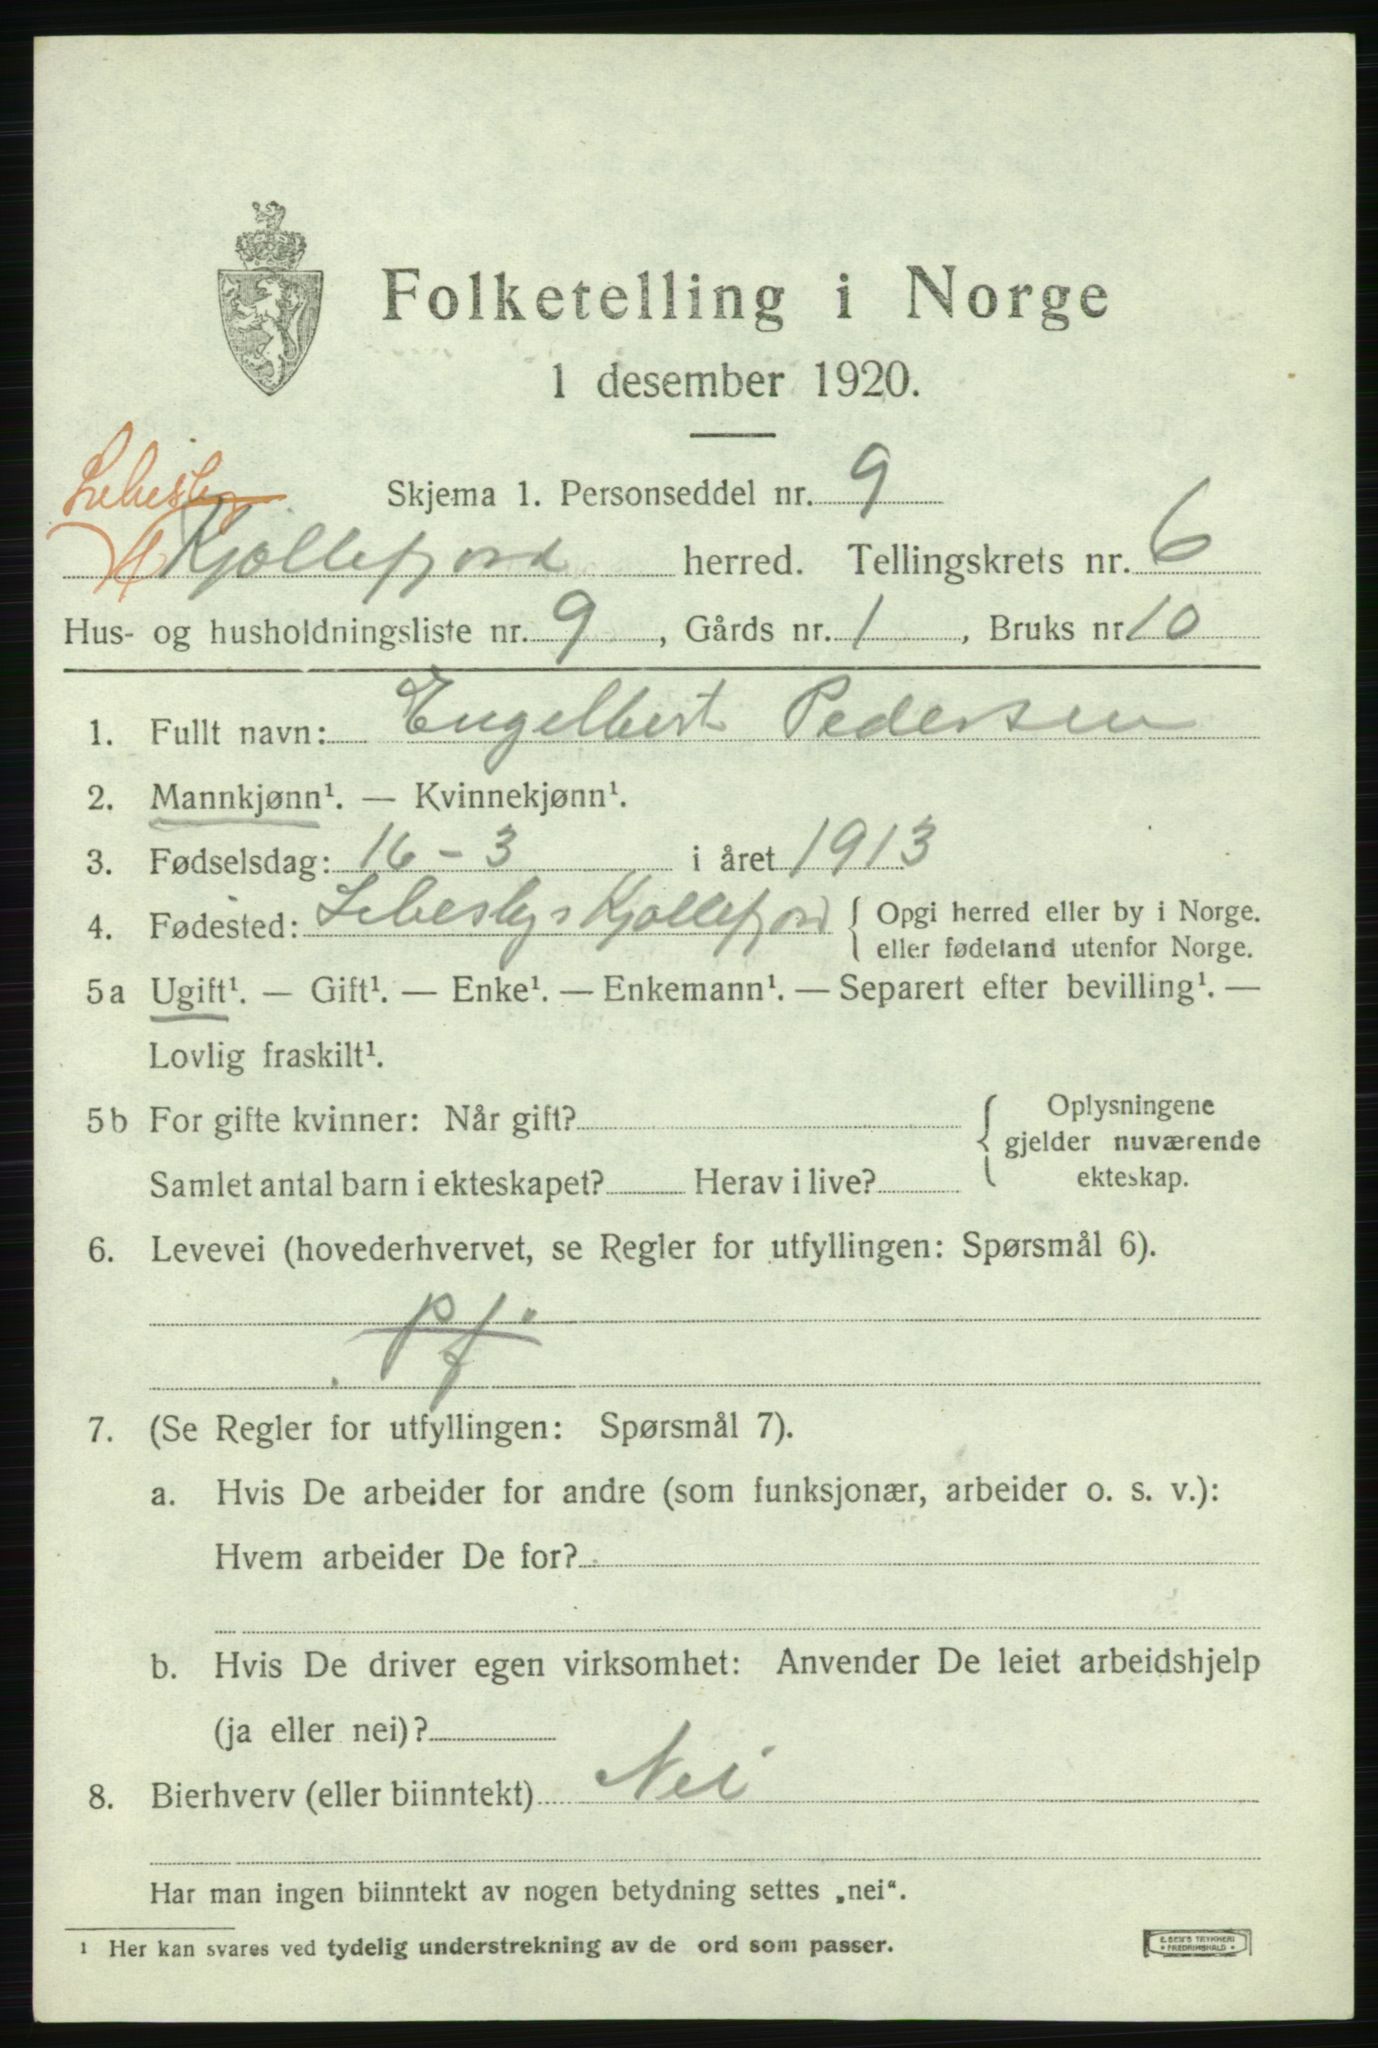 Folketelling i Norge
1 desember 1920.
Lebesby
Skjema 1. Personseddel nr. 9
Kjøllefjord herred. Tellingskrets nr. 6
Hus- og husholdningsliste nr. 9, Gårds nr. 1, Bruks nr 10
1. Fullt navn: Engelbert Pedersen
2. Mannkjønn¹. — Kvinnekjønn¹.
3. Fødselsdag: 16 - 3 i året 1913
4. Fødested: Lebesby s Kjøllefjord { Opgi herred eller by i Norge.
eller fødeland utenfor Norge.
5a Ugift¹. — Gift¹. — Enke¹. — Enkemann¹. — Separert efter bevilling¹. —
Lovlig fraskilt¹.
5b For gifte kvinner: Når gift? { Oplysningene
gjelder nuværende
Samlet antal barn i ekteskapet? Herav i live? ekteskap.
6. Levevei (hovederhvervet, se Regler for utfyllingen: Spørsmål 6).
pf.
7. (Se Regler for utfyllingen: Spørsmål 7).
a. Hvis De arbeider for andre (som funksjonær, arbeider o. s. v.):
Hvem arbeider De for?
b. Hvis De driver egen virksomhet: Anvender De leiet arbeidshjelp
(ja eller nei)?
8. Bierhverv (eller biinntekt) Nei
Har man ingen biinntekt av nogen betydning settes „nei“.
¹ Her kan svares ved tydelig understrekning av de ord som passer.
E. SEM'S TRYKKERI
• FREDRIKSHALD •